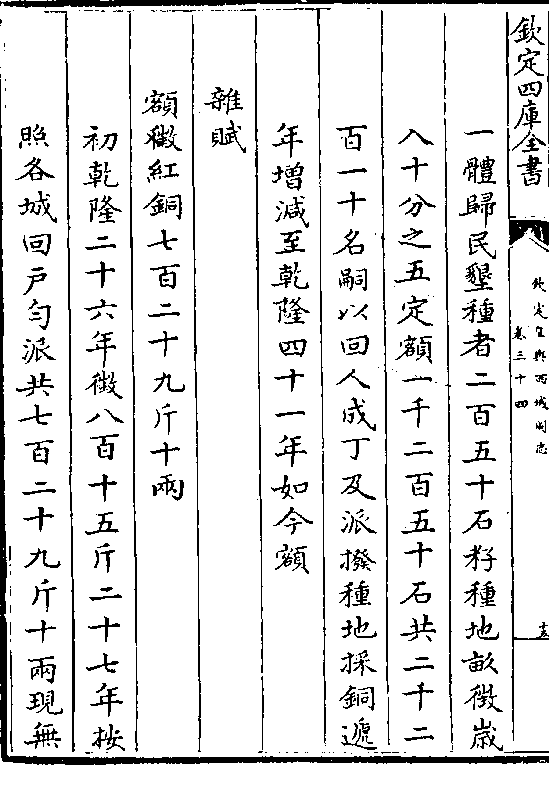 欽定四庫全書
欽定皇輿西域圖志
卷三十四
一體歸民墾種者二百五十石籽種地畝徵歲
入十分之五定額一千二百五十石共二千二
百一十名嗣以回人成丁及派撥種地採銅遞
年增減至乾隆四十一年如今額
雜賦
額徵紅銅七百二十九斤十兩
初乾隆二十六年徵八百十五斤二十七年按
照各城回戶勻派共七百二十九斤十兩現無